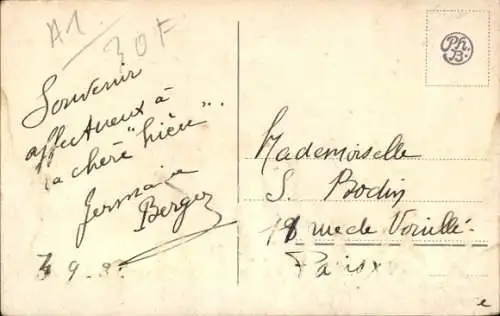 A1
30F
Souvenir
affectueux à
la chère "hièu"..
Germaine
Berger
9
Ph.
B.
Mademoiselle
S. Bodin
18 rue de Vouillé
Paris x
e